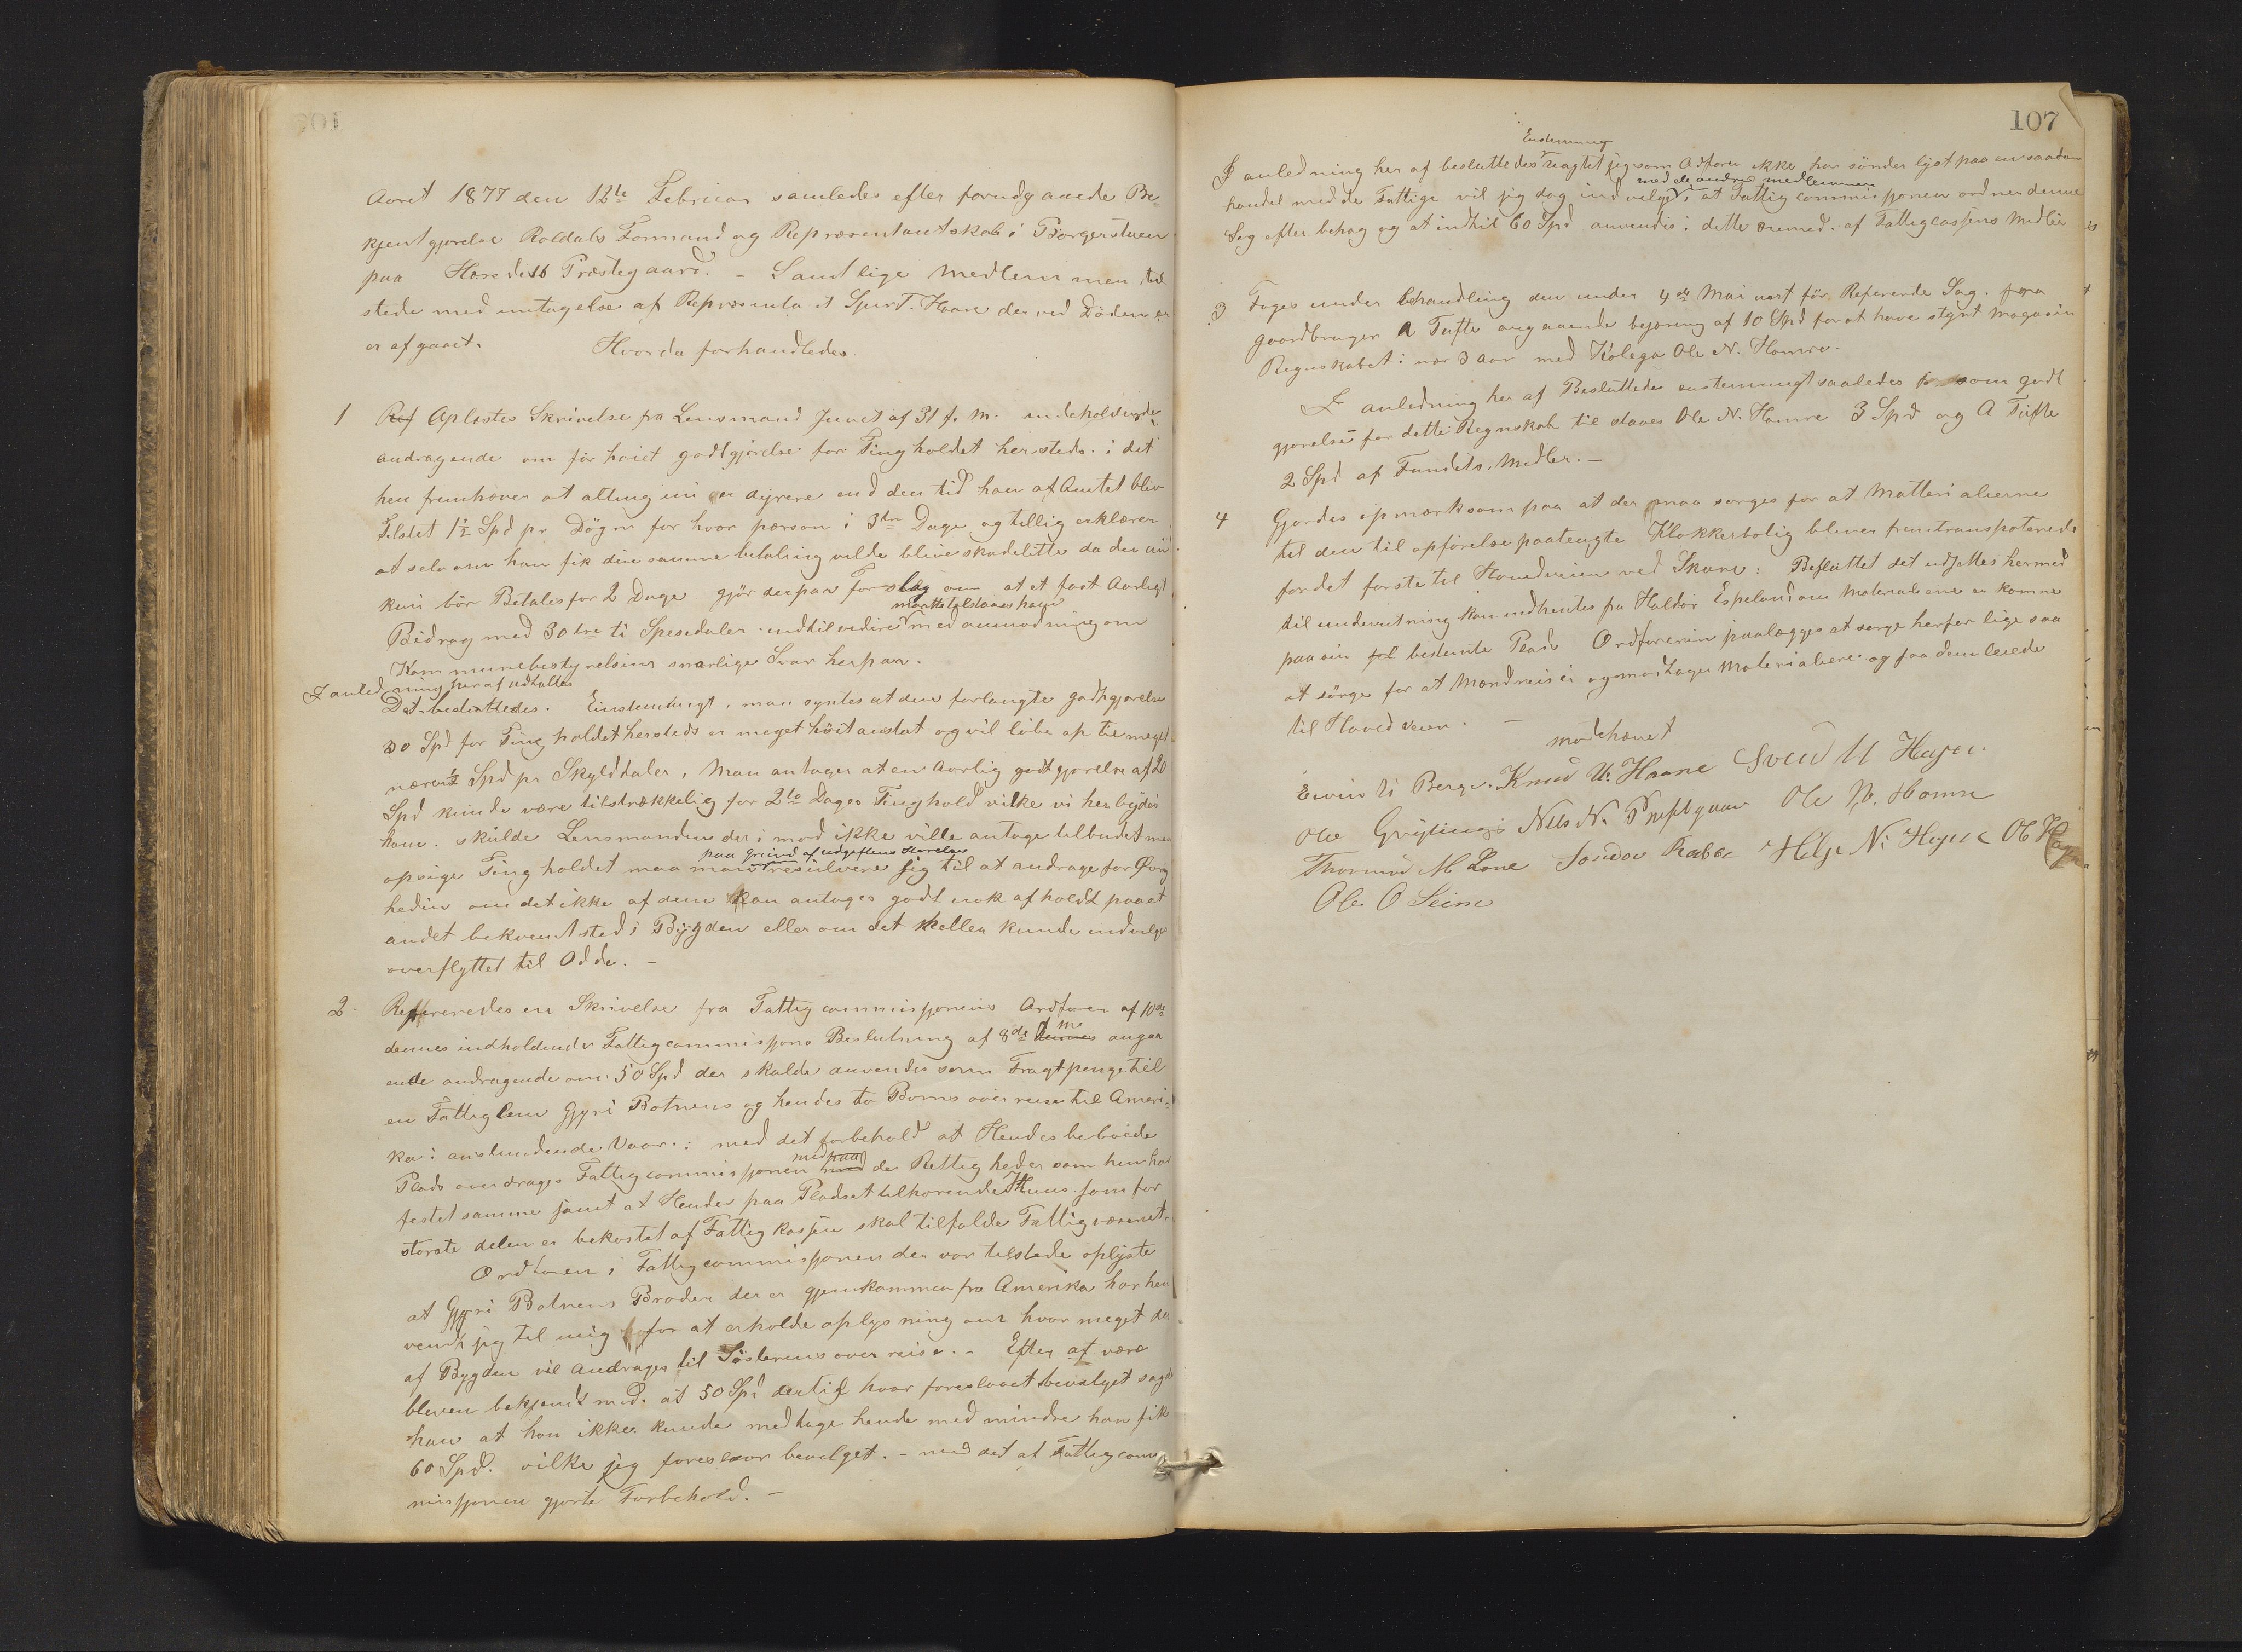 Aaret 1877 den 12te Februar samledes efter forudgaaede Be-
kjentgjørelse Røldals Formand og Repræsentantskab i Borgerstuen
paa Præstegaard. - Samtlige Medlemmer til
stede med undtagelse af Repræsenta t Spert. Haare der ved Døden er
er afgaaet. Hvorda forhandledes
1 Ref Aplæstes Skrivelse fra Lensmand Juvet af 31 f. m. indeholdende
andragende om for høiet godtgjørelse for Tingholdet hersteds. i det
hen fremhæver at alting nu er dyrere end den tid han af Amtet blev
Tilstet 1½ Spd pr Døgn for hvor person i 3tre Dage og tillig erklærer
at selv om han fik den samme betaling vilde blive skadelette da der nu
kun bør Betales for 2 Dage gjør derpaa Forslag om at et fast Aarligt
maatte tilstaaes ham
Bidrag med 30 tre ti Spesidaler indtil videre med anmodning om
Kommunebestyrelsens snarlige Svar herpaa.
I anledning heraf udtaltes
Det besluttedes. Einstemmigt, man syntes at den forlangte godtgjørelse
30 Spd for Tingholdet hersteds er meget høit ansat og vil løbe op til meget
nærer ½ Spd pr Skylddaler, Man antager at en Aarlig godtgjørelse af 20
Spd kunde være tilstrækkelig for 2to Dages Tinghold vilke vi herbyder
ham. skulde Lensmanden der i mod ikke ville antage tilbudet men
paa Grund af udgiftens Størrelse
opsige Tingholdet maa man resulvere sig til at andrage for Øvrig
heden om det ikke af dem kan antages godt nok afholdt paa et
andet bekvemt sted i Bygden eller om det heller kunde indvelges
overflyttet til Odde. -
2. Refereredes en Skrivelse fra Fattigcommissjonens Ordfører af 10de
dennes indholdende Fattigcommissjons Beslutning af 8de f m dennes angaa
ende andragende om 50 Spd der skulde anvendes som Fragtpenge til
en Fattiglem Gyri Botnens og hendes to Børns overreise til Ameri-
ka i anstundende Vaar.: med det forbehold at Hendes beboede
med paa
Plads omdrages Fattigcommissjonen med de Rettigheder som hun har
festet samme samt at Hendes paa Pladset tilhørende Huus som for
største delen er bekostet af Fattigkassen skal tilfalde Fattigvæsenet.
Ordføren i Fattigcommissjonen der var tilstede oplyste
at Gyri Botnens Broder der er gjenkommen fra Amerika har hen
vendt sig til mig for at erholde oplysning om hvor meget der
af Bygden vil andrages til Søsterens over reise. - Efter at være
bleven bekjendt med at 50 Spd dertil hvor foreslaaet bevelget sagde
han at han ikke kunde medtage hende med mindre han fik
60 Spd. vilke jeg foreslaar bevelget. - med det af Fattigcom
missjonen gjorte Forbehold. -
107
Enstemmig
I anledning her af besluttedes uagtet jeg som Ordfører ikke har sønder lyst paa en saadan
med de andre medlemmer
handel med de Fattige vil jeg dog indvelge, at Fattigcommissjonen ordner denne
Sag efter behag og at indtil 60 Spd anvendes i dette øiemed. af Fattigcassens Midler
3 Toges under behandling den under 4de Mai nest før Refererede Sag. fra
gaardbruger A Tufte angaaende begjæring af 10 Spd for at have styrt Magasin
Regnskabet i nær 3 aar med Kolega Ole N. Hamre.
I anledning her af Besluttedes enstemmigt saaledes som godt
gjørelse for dette Regnskab til staaes Ole N. Hamre 3 Spd og A Tufte
2 Spd af Fundets Midler. -
4 Gjordes opmærksom paa at der maa sørges for at Matterialierne
til den til opførelse paatengte Klokkerbolig bliver fremtransporterede
for det første til Hovedveien ved Skare: Besluttet det udsettes hermed
til underretning kan indhentes fra Haldor Espeland om Materialerne er komne
paa sin bestemte Plads Ordføreren paalægges at sørge herfor lige saa
at sørge for at Mand reiser og modtager Materialerne og faa dem leiede
til Hovedveien. - modehævet
Eivin Berge. Knud U. Haare Svend U Hagen.
Ole Grytings Nils N. Prestgaar Ole N. Hamre
Thormod M Lone Sondov Rabbe Helje N. Hagen Ol Hagen
Ole O Seim